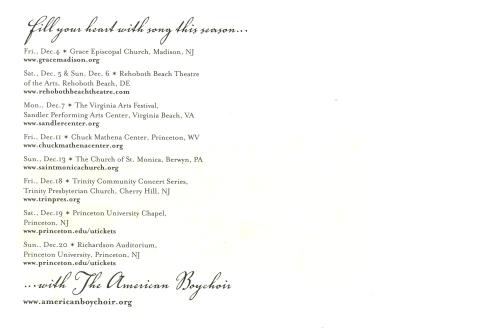 fill your heart with song this season...
Fri., Dec.4 * Grace Episcopal Church, Madison, NJ
www.gracemadison.org
Sat., Dec. 5 & Sun. Dec. 6 * Rehoboth Beach Theatre
of the Arts, Rehoboth Beach, DE
www.rehobothbeachtheatre.com
Mon., Dec.7 * The Virginia Arts Festival,
Sandler Performing Arts Center, Virginia Beach, VA
www.sandlercenter.org
Fri., Dec.11 * Chuck Mathena Center, Princeton, WV
www.chuckmathenacenter.org
Sun., Dec.13 * The Church of St. Monica, Berwyn, PA
www.saintmonicachurch.org
Fri., Dec.18 * Trinity Community Concert Series,
Trinity Presbyterian Church, Cherry Hill, NJ
www.trinpres.org
Sat., Dec.19 * Princeton University Chapel,
Princeton, NJ
www.princeton.edu/utickets
Sun., Dec.20 * Richardson Auditorium,
Princeton University, Princeton, NJ
www.princeton.edu/utickets
...with The American Boychoir
www.americanboychoir.org